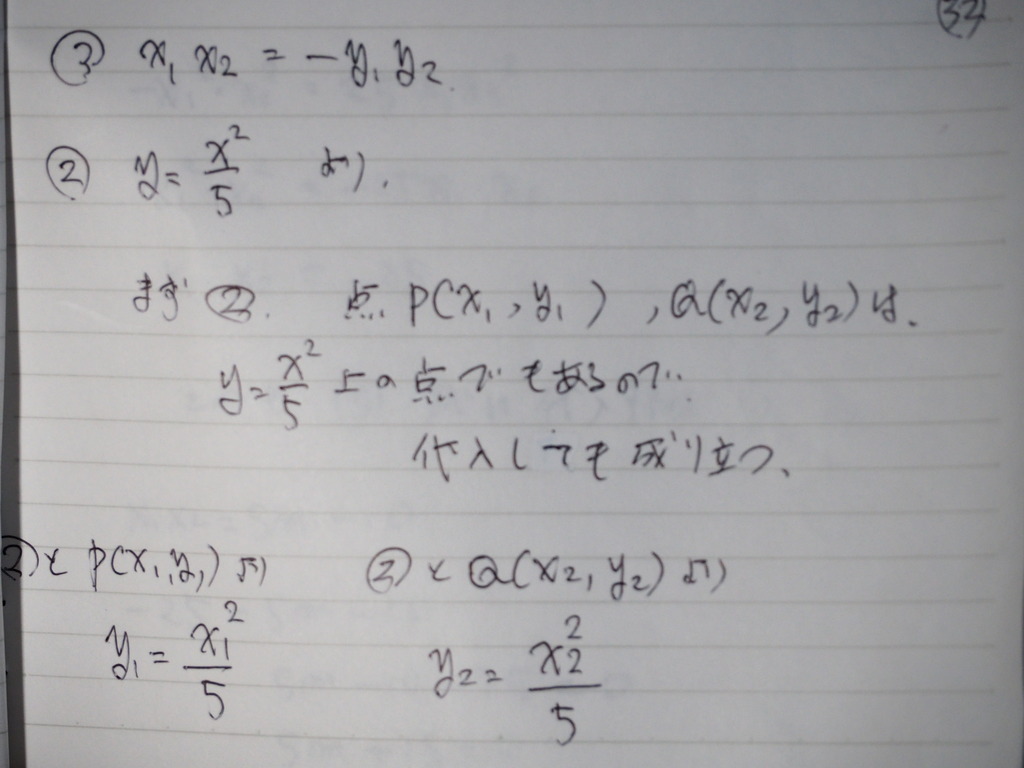 ③ x₁ x₂ = -y₁ y₂.
② y = x²/5 より.
まず ②. 点 P(x₁, y₁), Q(x₂, y₂)は.
y = x²/5 上の点でもあるので.
代入しても成り立つ.
②と P(x₁, y₁) より ②と Q(x₂, y₂) より
y₁ = x₁²/5 y₂ = x₂²/5